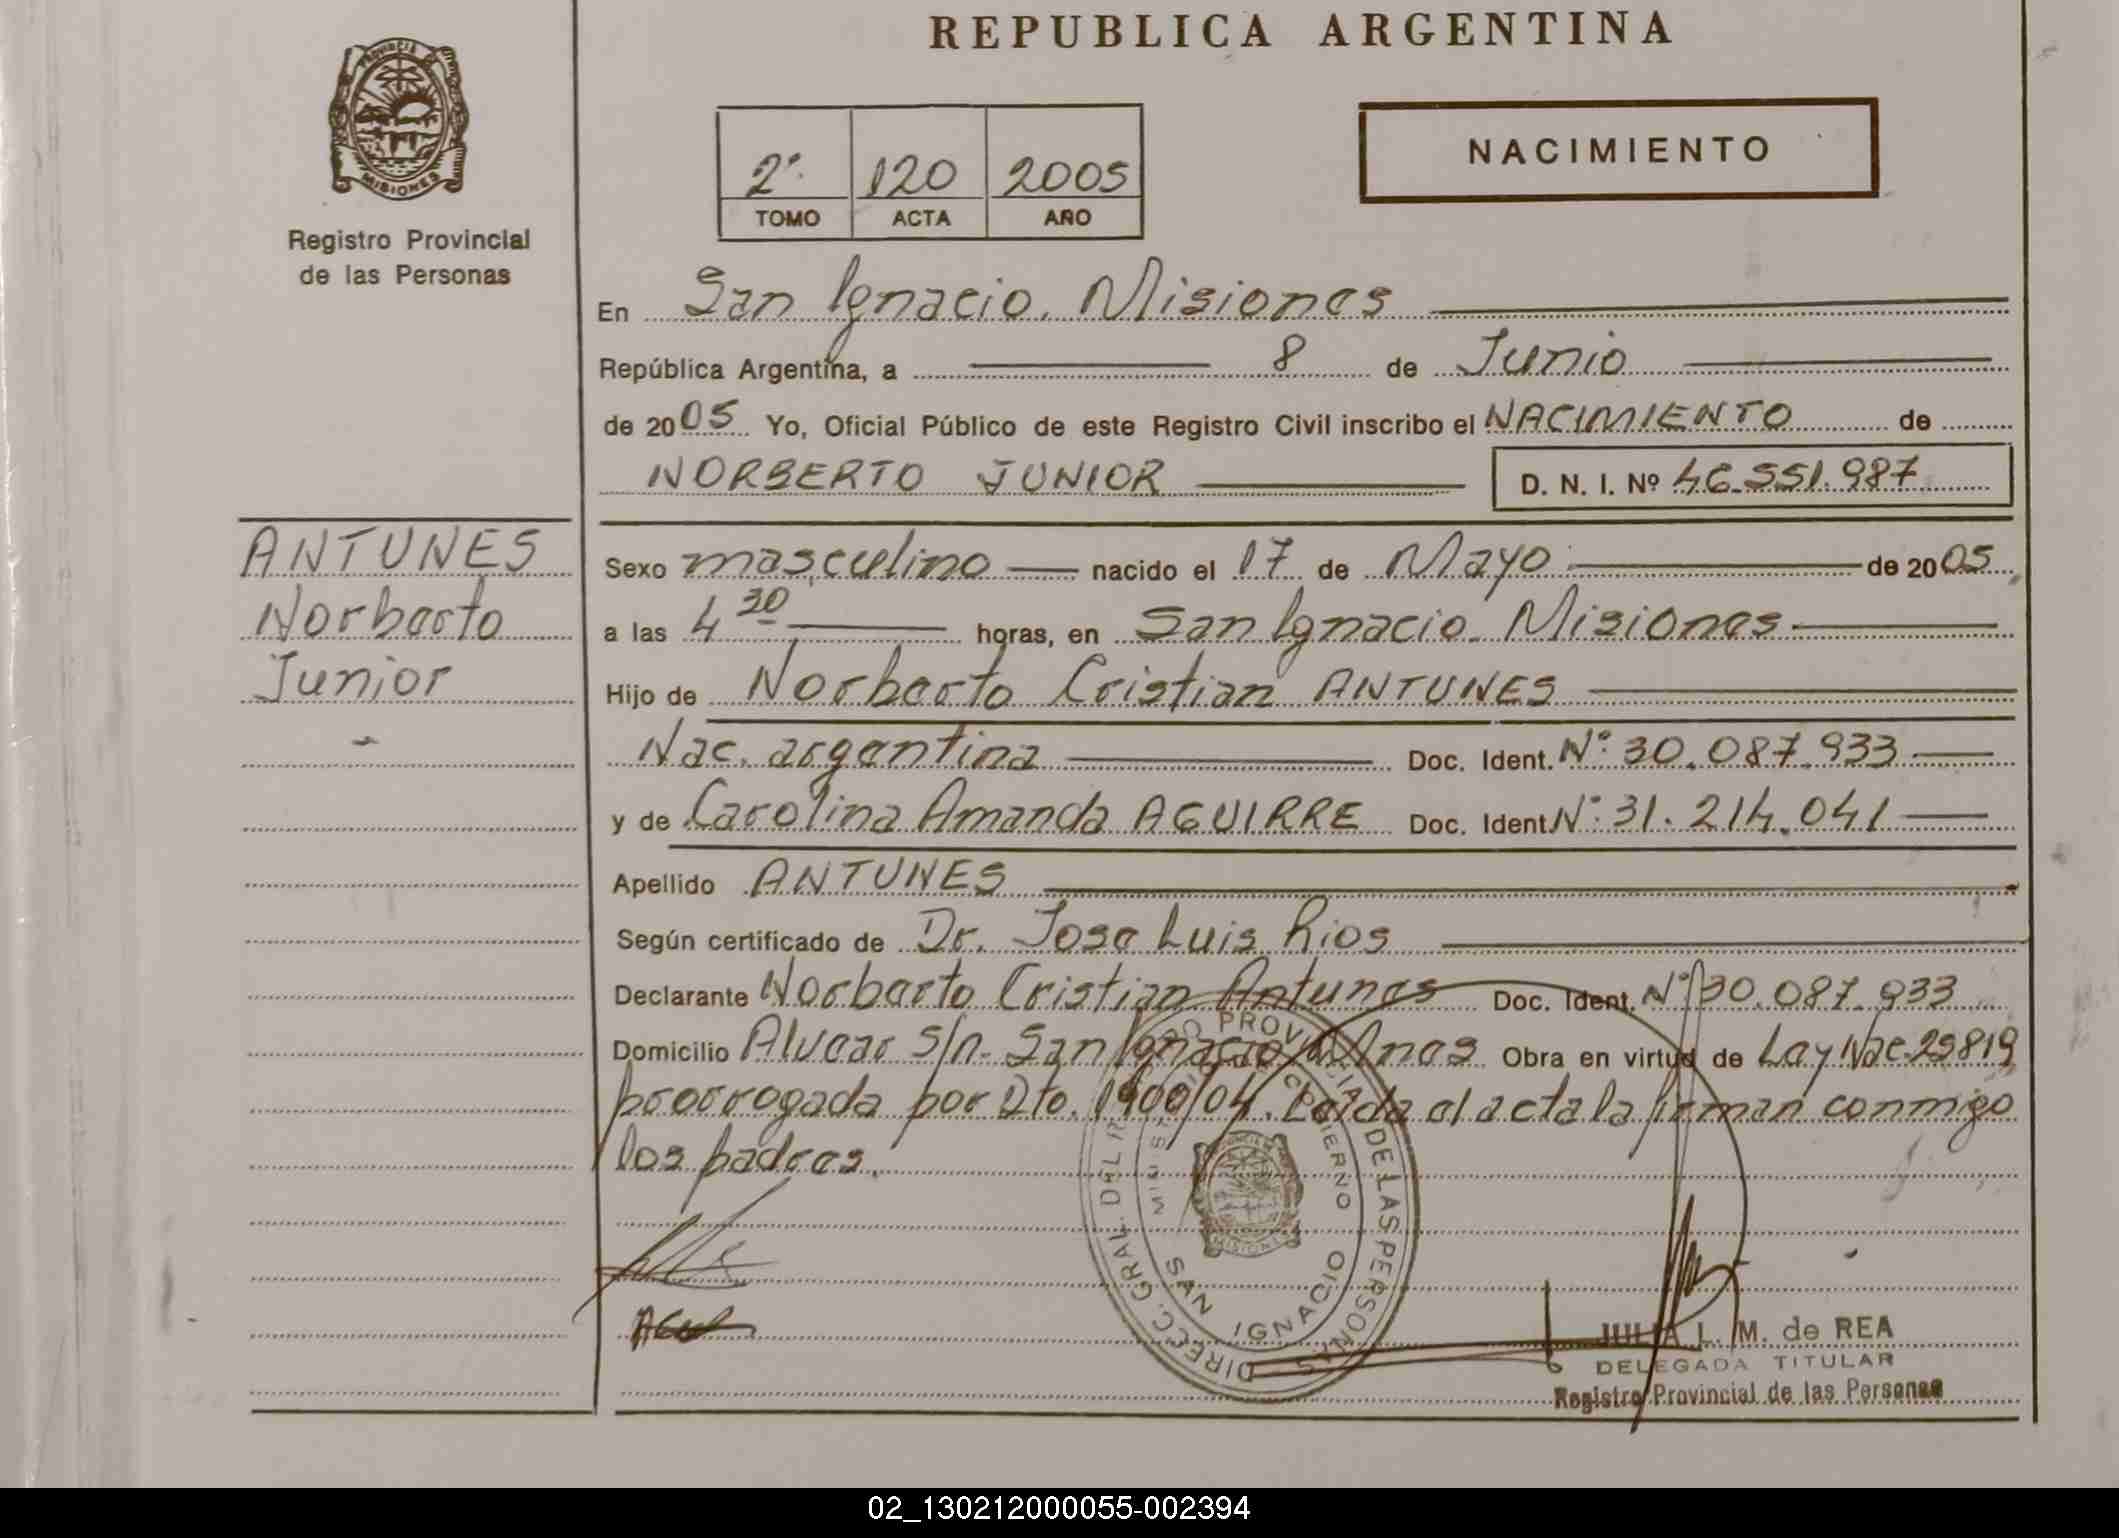 REPUBLICA ARGENTINA
PROVINCIA
MISIONES
Registro Provincial
de las Personas
NACIMIENTO
2º 120 2005
TOMO ACTA AÑO
En San Ignacio. Misiones
República Argentina, a 8 de Junio
de 2005 Yo, Oficial Público de este Registro Civil inscribo el NACIMIENTO de
NORBERTO JUNIOR D. N. I. Nº 46.551.987
ANTUNES
Norberto
Junior
Sexo masculino nacido el 17 de Mayo de 2005
a las 4 30 horas, en San Ignacio. Misiones
Hijo de Norberto Cristian ANTUNES
Nac. argentina Doc. Ident. Nº 30.087.933
y de Carolina Amanda AGUIRRE Doc. Ident Nº 31.214.041
Apellido ANTUNES
Según certificado de Dr. Jose Luis Rios
Declarante Norberto Cristian Antunes Doc. Ident. Nº 30.087.933
Domicilio Alvear s/n. San Ignacio Mnes Obra en virtud de Ley Nac. 25819
prorrogada por Dto. 1900/04. Leida el acta la firman conmigo
los padres.
DIREC. GRAL. DEL PROVINCIAL DE LAS PERSONAS
GOBIERNO
SAN IGNACIO
MISIONES
JULIA L. M. de REA
DELEGADA TITULAR
Registro Provincial de las Personas
02_130212000055-002394